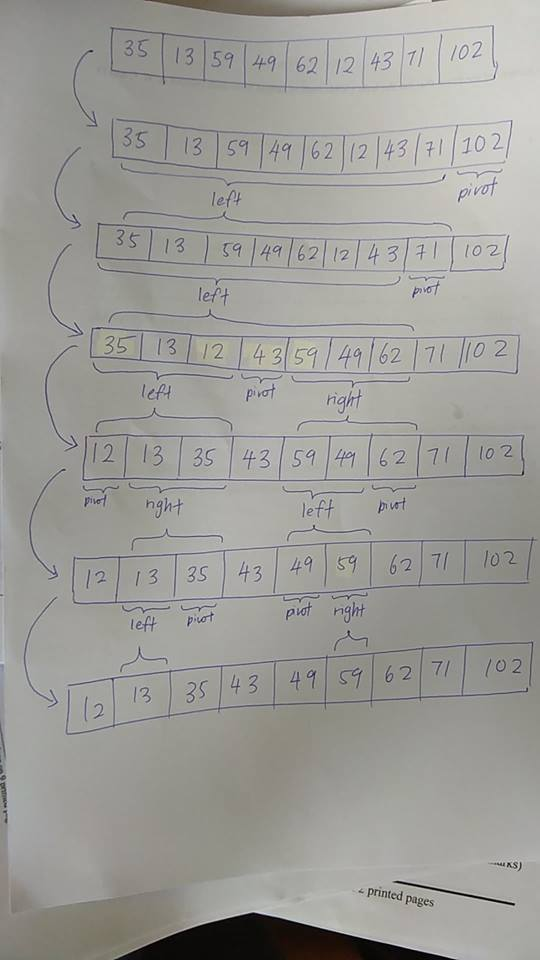 35 13 59 49 62 12 43 71 102
35 13 59 49 62 12 43 71 102
left pivot
35 13 59 49 62 12 43 71 102
left pivot
35 13 12 43 59 49 62 71 102
left pivot right
12 13 35 43 59 49 62 71 102
pivot right left pivot
12 13 35 43 49 59 62 71 102
left pivot pivot right
12 13 35 43 49 59 62 71 102
printed pages